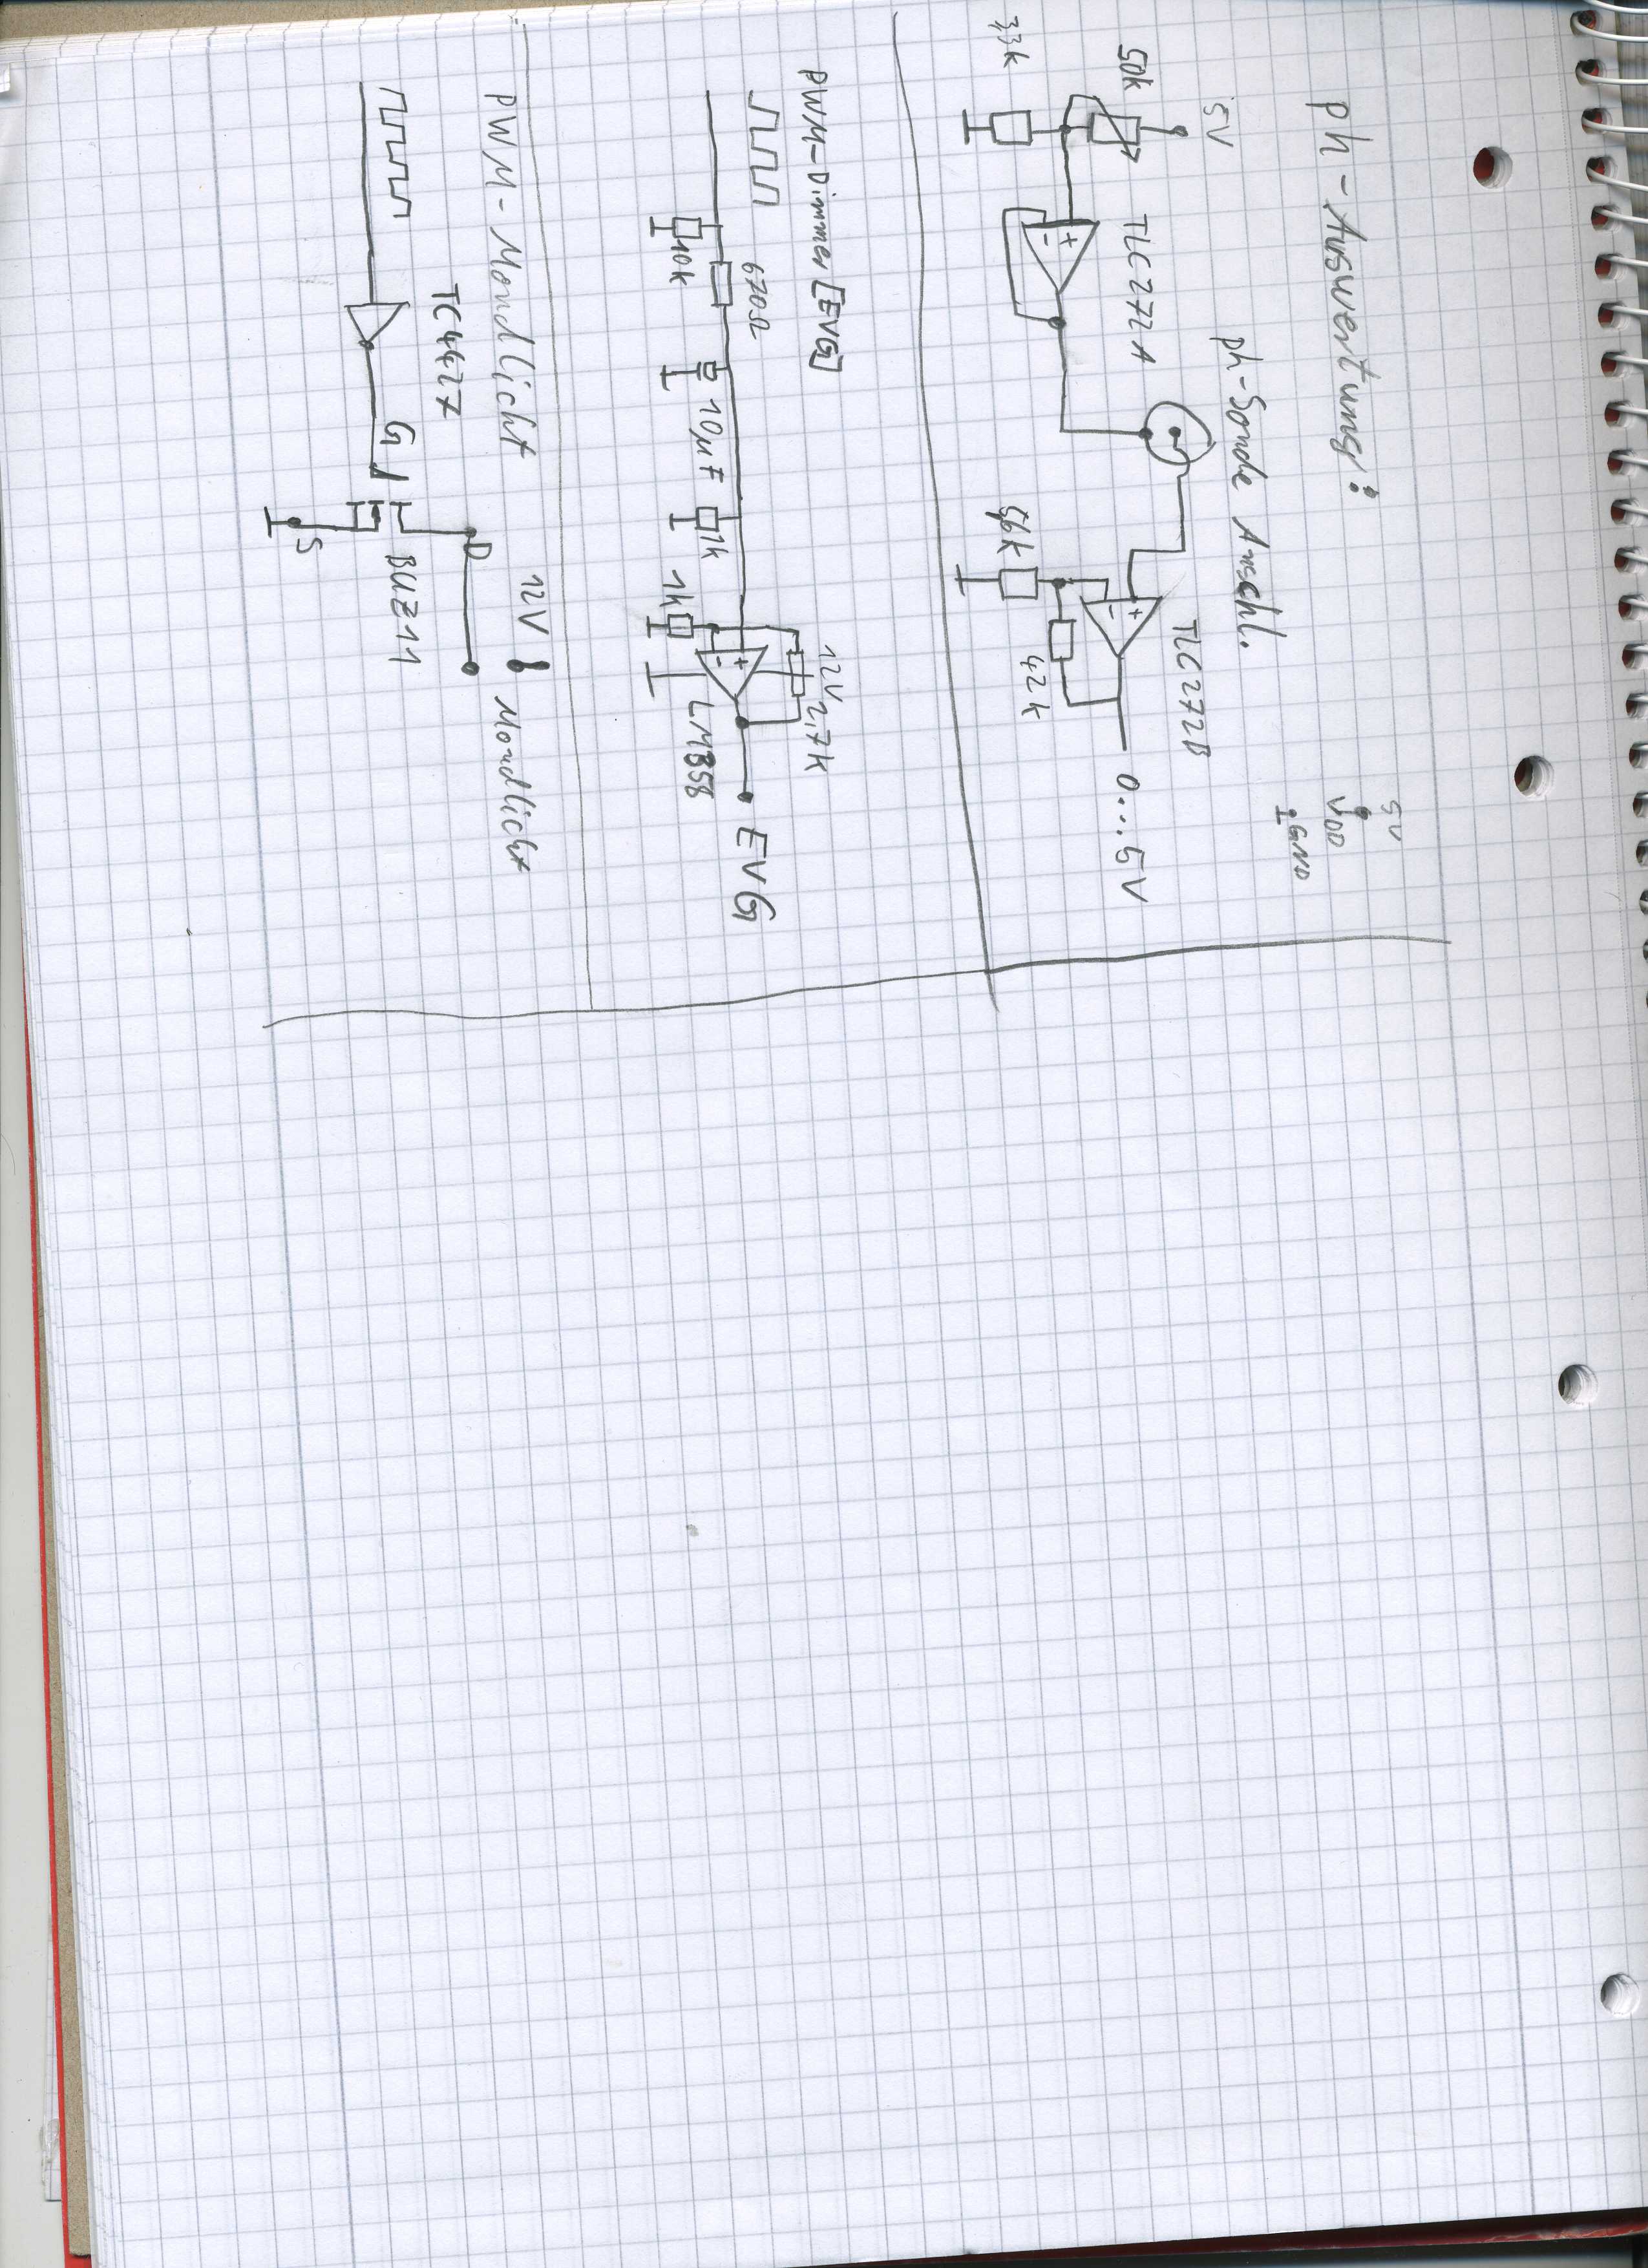 ph-Auswertung:
5V
VDD
GND
ph-Sonde Anschl.
5V
50k
TLC272A
TLC272B
3,3k
+
-
+
-
0....5V
56k
42k
PWM-Dimmer [EVG]
670Ω
12V
2,7k
10k
10µF
1k
1k
+
-
LM358
EVG
PWM-Mondlicht
12V
Mondlicht
TC4427
G
D
BUZ11
S